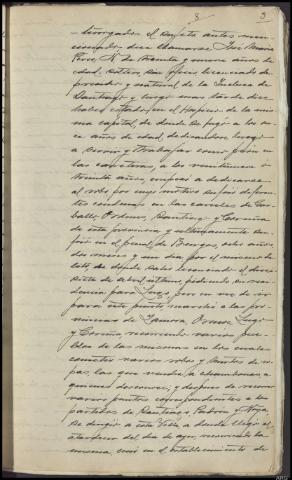 8 3
-terrogado el sujeto antes men-
cionado, dice llamarse José Maria
Pérez, N de treinta y nueve años de
edad, soltero, sin oficio, licenciado de
presidio y natural de la Inclusa de
Santiago y luego mas tarde dice
haber estado en el Hospicio de la mis-
ma capital, de donde se fugó a los on-
ce años de edad, dedicandose luego
a servir y trabajar como peón en
las carreteras, a los veintinueve ó
treinta años, empezó a dedicarse
al robo por cuyo motivo sufrió diferen-
tes condenas en las carceles de Car-
ballo, Ordenes, Santiago y Coruña
de esta provincia y ultimamente su-
frió en el penal de Burgos, ocho años,
dos meses y un dia por el mismo de-
lito, de donde salió licenciado el diez
y siete de abril ultimo, pidiendo su resi-
dencia para Lugo, pero en vez de ir
para este punto marchó a las pro-
vincias de Zamora, Orense, Lugo
y Coruña, recorriendo varios pue-
blos de las mismas en los cuales
cometió varios robos y hurtos de ro-
pas, las que vendia a
quienes desconoce, y despues de recorrer
varios puntos correspondientes a los
partidos de Santiago, Padron y Noya
se dirigió a esta Villa a donde llegó al
atardecer del dia de ayer, recorriendo la
misma entró en el establecimiento de